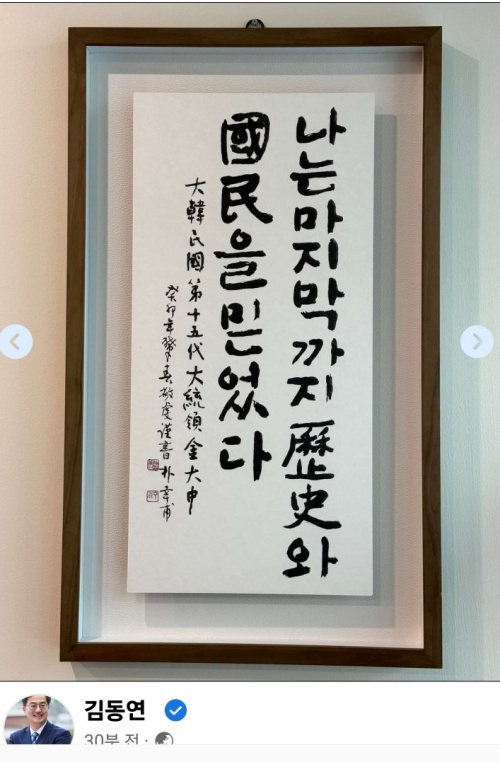 나는마지막까지歷史와
國民을믿었다
大韓民國第十五代大統領金大中
김동연
30분 전 ·